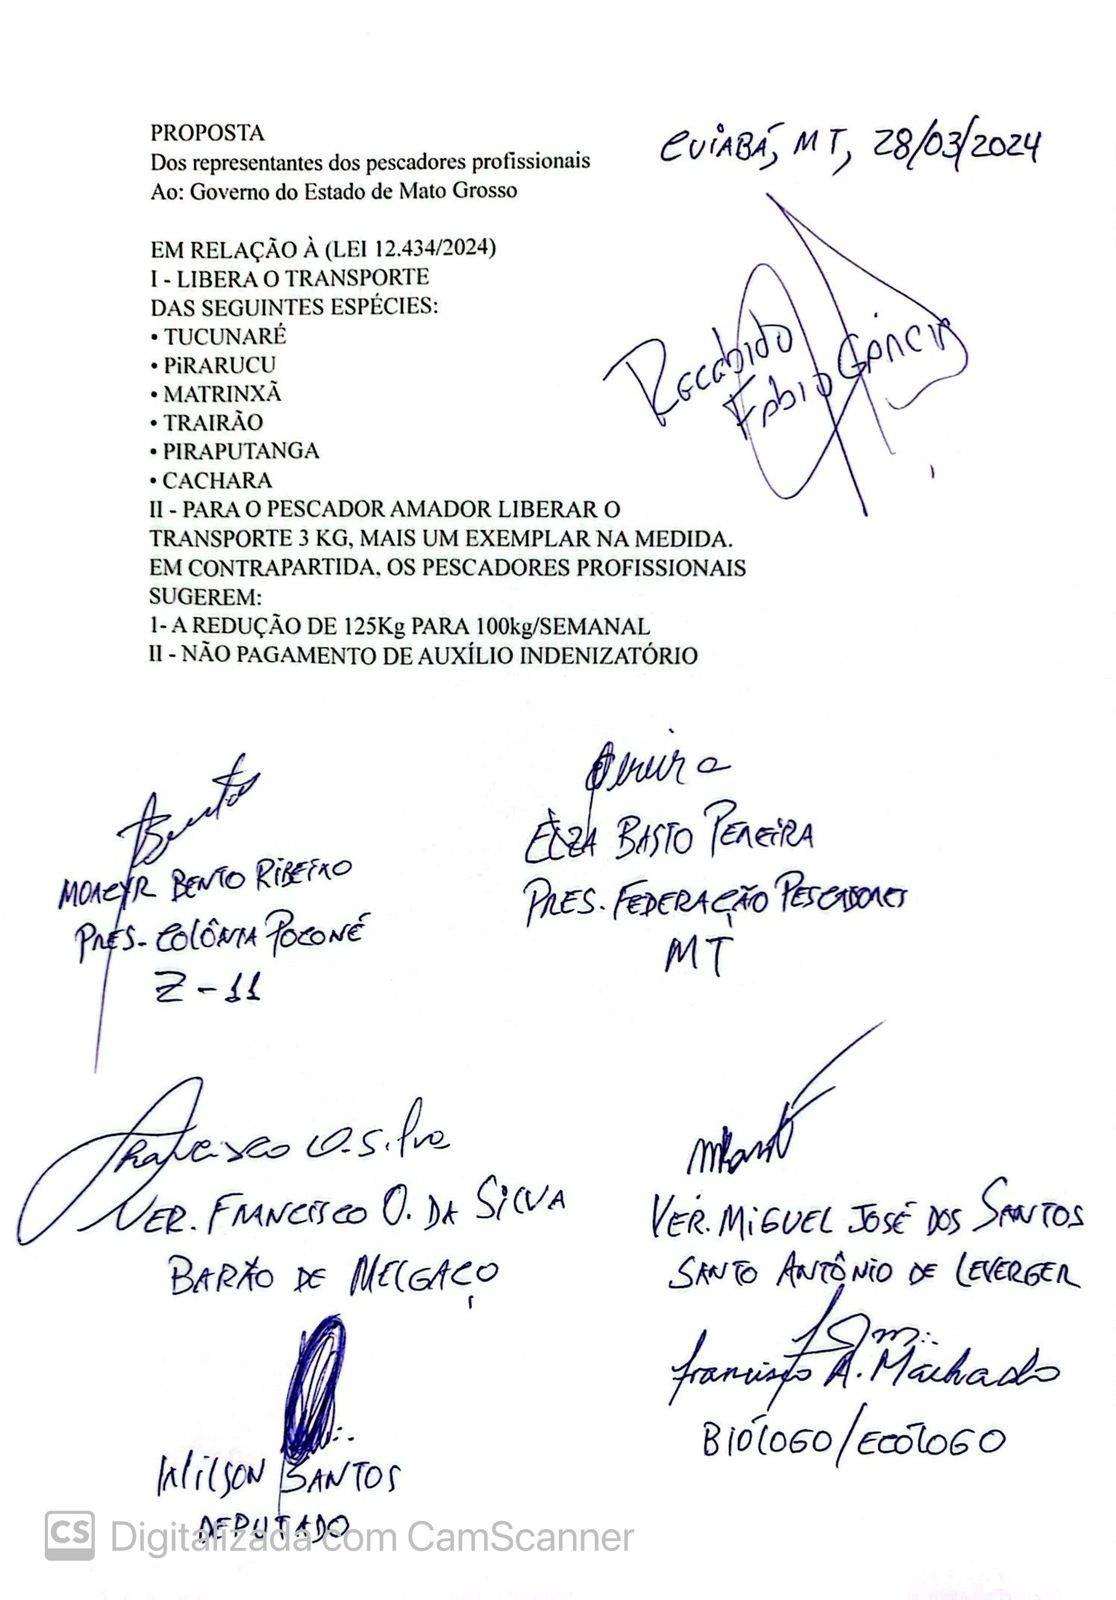 PROPOSTA
Dos representantes dos pescadores profissionais
Ao: Governo do Estado de Mato Grosso
CUIABÁ, MT, 28/03/2024
Recebido
Fábio Garcia
EM RELAÇÃO À (LEI 12.434/2024)
I - LIBERA O TRANSPORTE
DAS SEGUINTES ESPÉCIES:
• TUCUNARÉ
• PiRARUCU
• MATRINXÃ
• TRAIRÃO
• PIRAPUTANGA
• CACHARA
II - PARA O PESCADOR AMADOR LIBERAR O
TRANSPORTE 3 KG, MAIS UM EXEMPLAR NA MEDIDA.
EM CONTRAPARTIDA, OS PESCADORES PROFISSIONAIS
SUGEREM:
1- A REDUÇÃO DE 125Kg PARA 100kg/SEMANAL
II - NÃO PAGAMENTO DE AUXÍLIO INDENIZATÓRIO
Bento
MOACYR BENTO RIBEIRO
PRES. COLÔNIA POCONÉ
Z-11
Pereira
ELZA BASTO PEREIRA
PRES. FEDERAÇÃO PESCADORES
MT
Francisco O. Silva
VER. FRANCISCO O. DA SILVA
BARÃO DE MELGAÇO
VER. MIGUEL JOSÉ DOS SANTOS
SANTO ANTÔNIO DE LEVERGER
Francisco A. Machado
BIÓLOGO/ECÓLOGO
WILSON SANTOS
DEPUTADO
CS Digitalizada com CamScanner